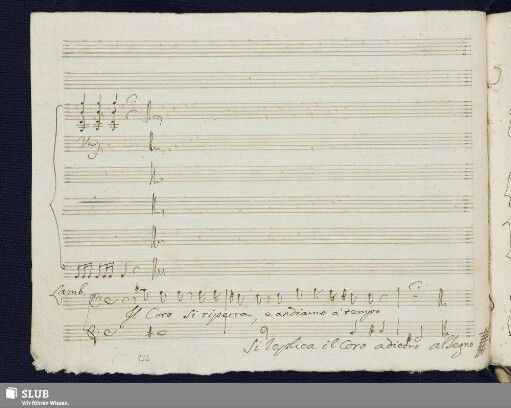 Unis:
Lamb.
Il Coro si ripeta, e andiamo a tempo
Si replica il Coro a dietro al Segno
132
SLUB
Wir führen Wissen.